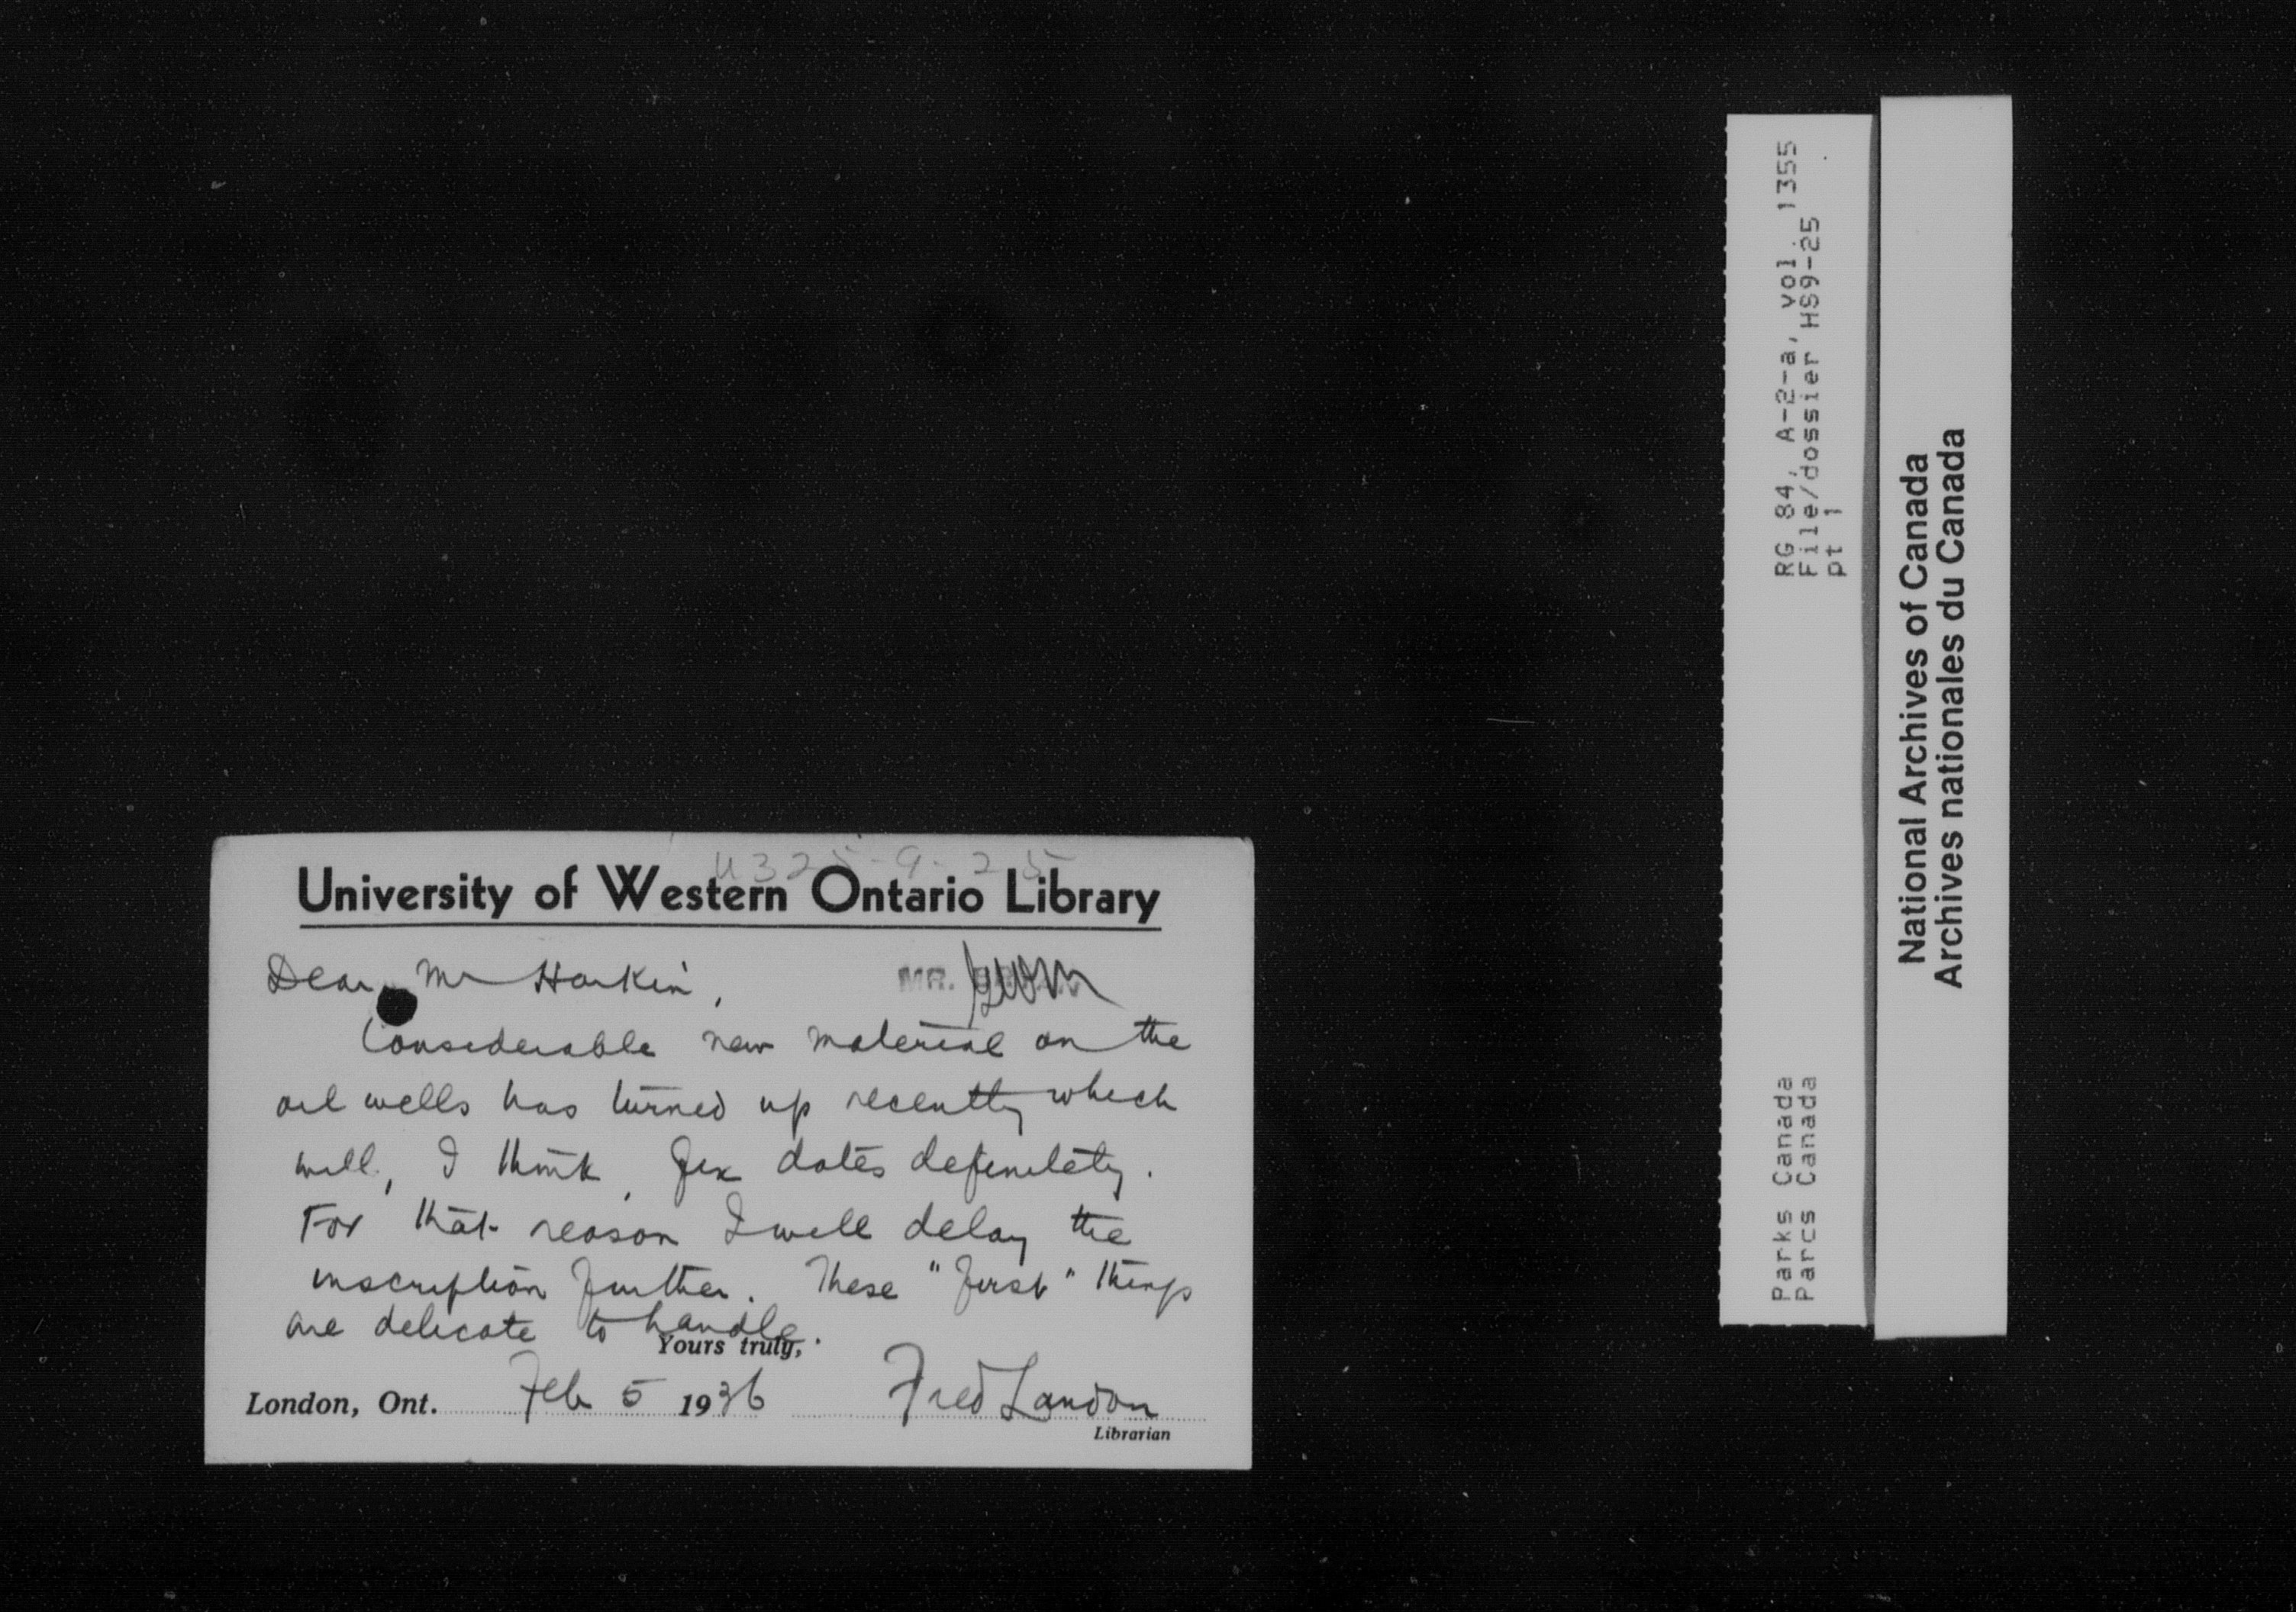 U325-9-25
University of Western Ontario Library
Dear Mr Harkin,
MR.
Considerable new material on the
oil wells has turned up recently which
will, I think, fix dates definitely.
For that reason I will delay the
inscription further. These "first" things
are delicate to handle.
Yours truly,
London, Ont. Feb 5 1936 Fred Landon
Librarian
RG 84, A-2-a, vol. 1355
File/dossier HS9-25
pt 1
Parks Canada
Parcs Canada
National Archives of Canada
Archives nationales du Canada